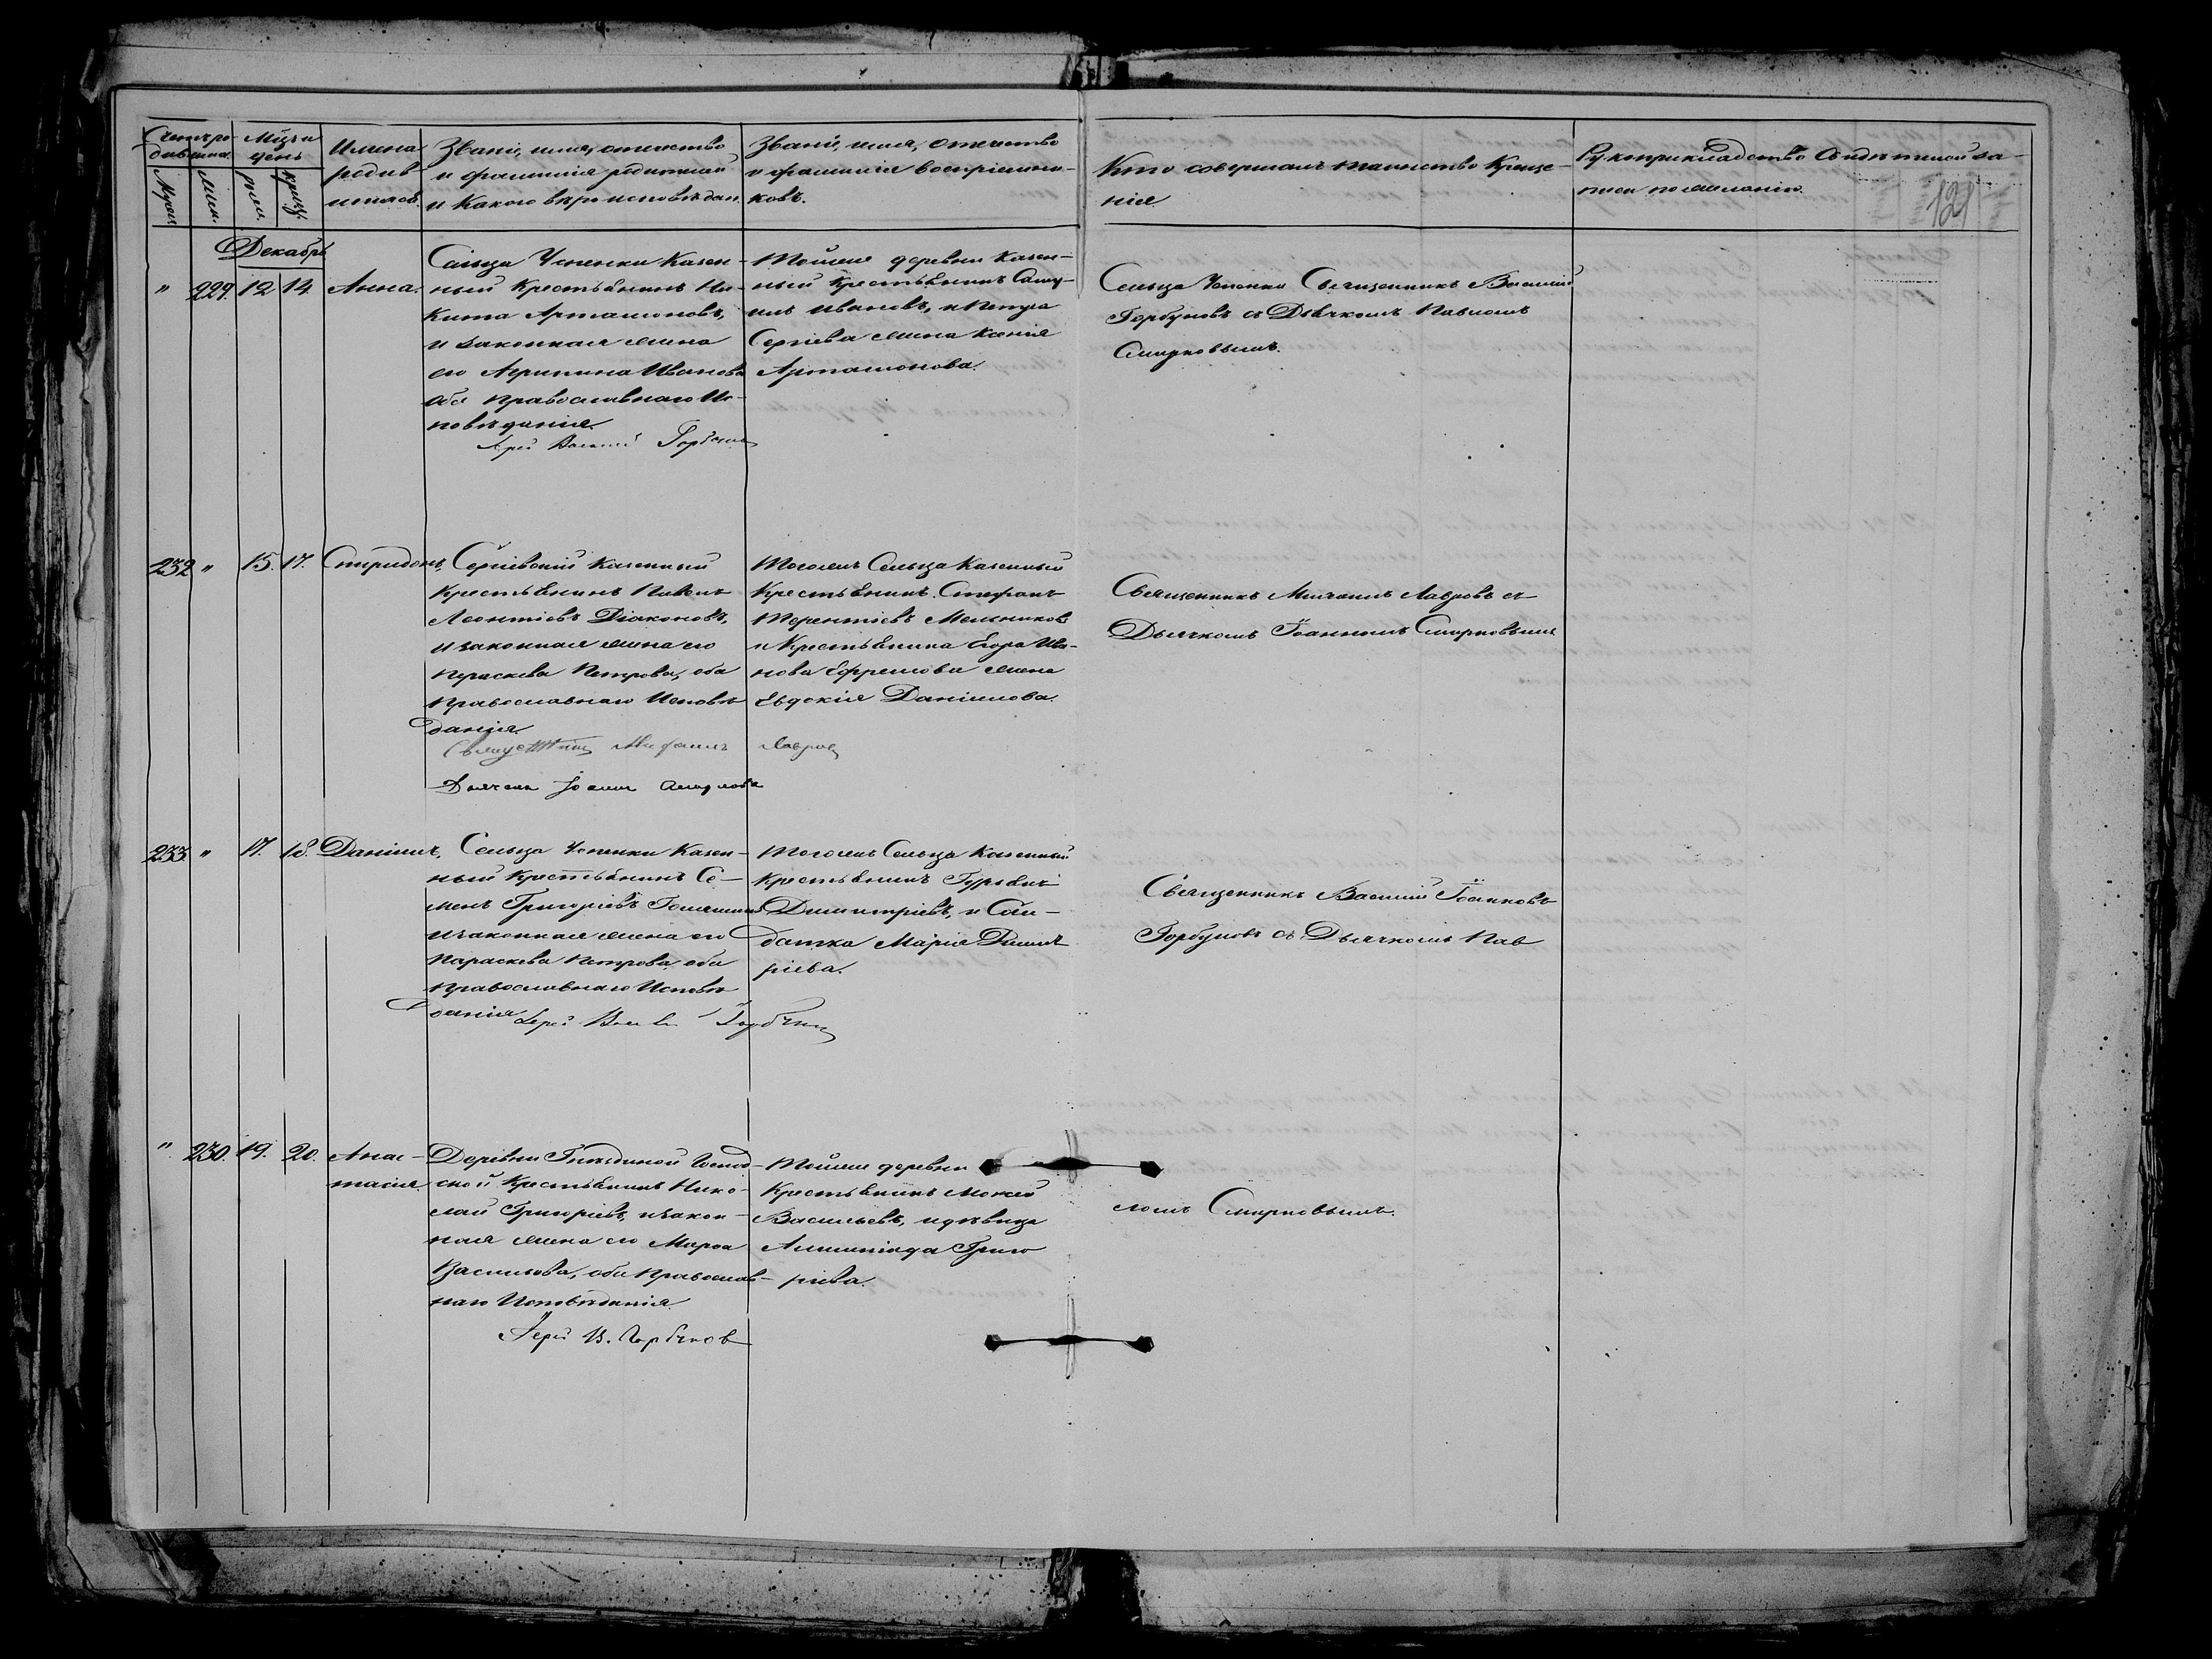 Счетъ ро-
дившихся.
Муж.
Жен.
Мѣсяцъ и
день
рожд.
крещ.
Имена
родив
шихся.
Званіе, имя, отечество
и фамилія родителей
и какого вѣроисповѣдан.
Званіе, имя, отечество
и фамилія воспріемни-
ковъ.
Кто совершалъ таинство Креще-
нія
Рукоприкладство свидѣтелей за-
писи по желанію.
121
Декабрь
" 229. 12 14. Анна.
Сельца Успенки Казен-
ный Крестьянинъ Ни-
кита Артамоновъ,
и законная жена
его Агрипина Иванова
оба православнаго Ис-
повѣданія.
Іерей Василій Горбунов
Тойже деревни Казен-
ный Крестьянинъ
Ивановъ, и Петра
Сергіева жена Ксенія
Артамонова.
Сельца Успенки Священникъ Василий
Горбуновъ съ Дьячкомъ Павломъ
Смирновымъ.
232 " 15. 17. Спиридонъ.
Сергіевскій Казенный
Крестьянинъ Павелъ
Леонтіевъ Діаконовъ,
и законная жена его
Параскева Петрова, оба
православнаго Исповѣ
данія
Священникъ Михаилъ Лавров
Дьячекъ Іоаннъ Смирновъ
Тогожъ Сельца Казенный
Крестьянинъ Стефанъ
Терентіевъ Мельников
и Крестьянина Егора Ива-
нова Ефремова жена
Евдокія Даніилова.
Священникъ Михаилъ Лавровъ съ
Дьячкомъ Іоанномъ Смирновымъ
233 " 17. 18. Даніилъ.
Сельца Успенки Казен-
ный Крестьянинъ Се-
менъ Григоріевъ
и законная жена его
Параскева Петрова, оба
православнаго Исповѣ
данія Іерей Василий Горбунов
Тогожъ Сельца Казенный
Крестьянинъ
Димитріевъ, и Сол-
датка Марія Димит
ріева.
Священникъ Василий Іоанновъ
Горбуновъ съ Дьячкомъ Пав
" 230. 19. 20. Анас-
тасія.
Деревни Гнѣздиной Господ-
ской Крестьянинъ Нико-
лай Григоріевъ, и закон-
ная жена его Марѳа
Васильева, оба Православ-
наго Исповѣданія.
Іерей В. Горбунов
Тойже деревни
Крестьянинъ Моисей
Васильевъ, и дѣвица
Григо
ріева.
ломъ Смирновымъ.